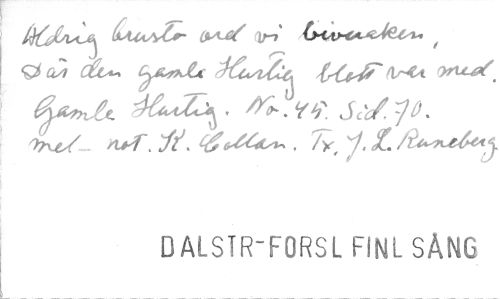 Aldrig brusto ord vi bivuaken,
Där den gamle Hurtig blott var med.
Gamle Hurtig. No. 45. Sid. 70.
mel- not. K. Collan. Tx. J. L. Runeberg
DALSTR-FORSL FINL SÅNG